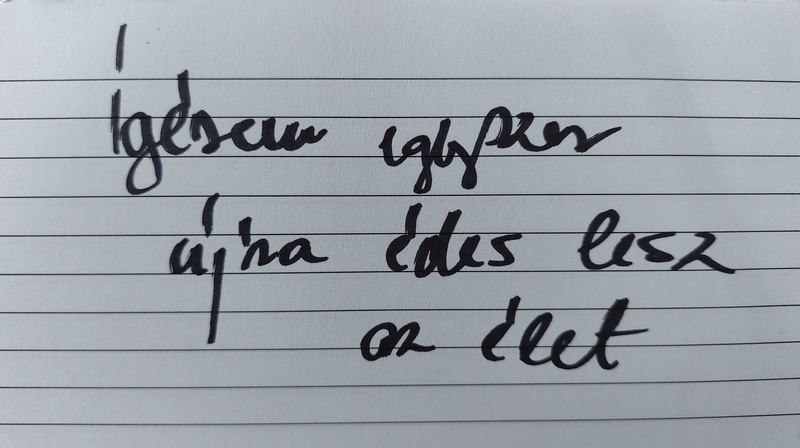 Ígérem egyszer
újra édes lesz
az élet